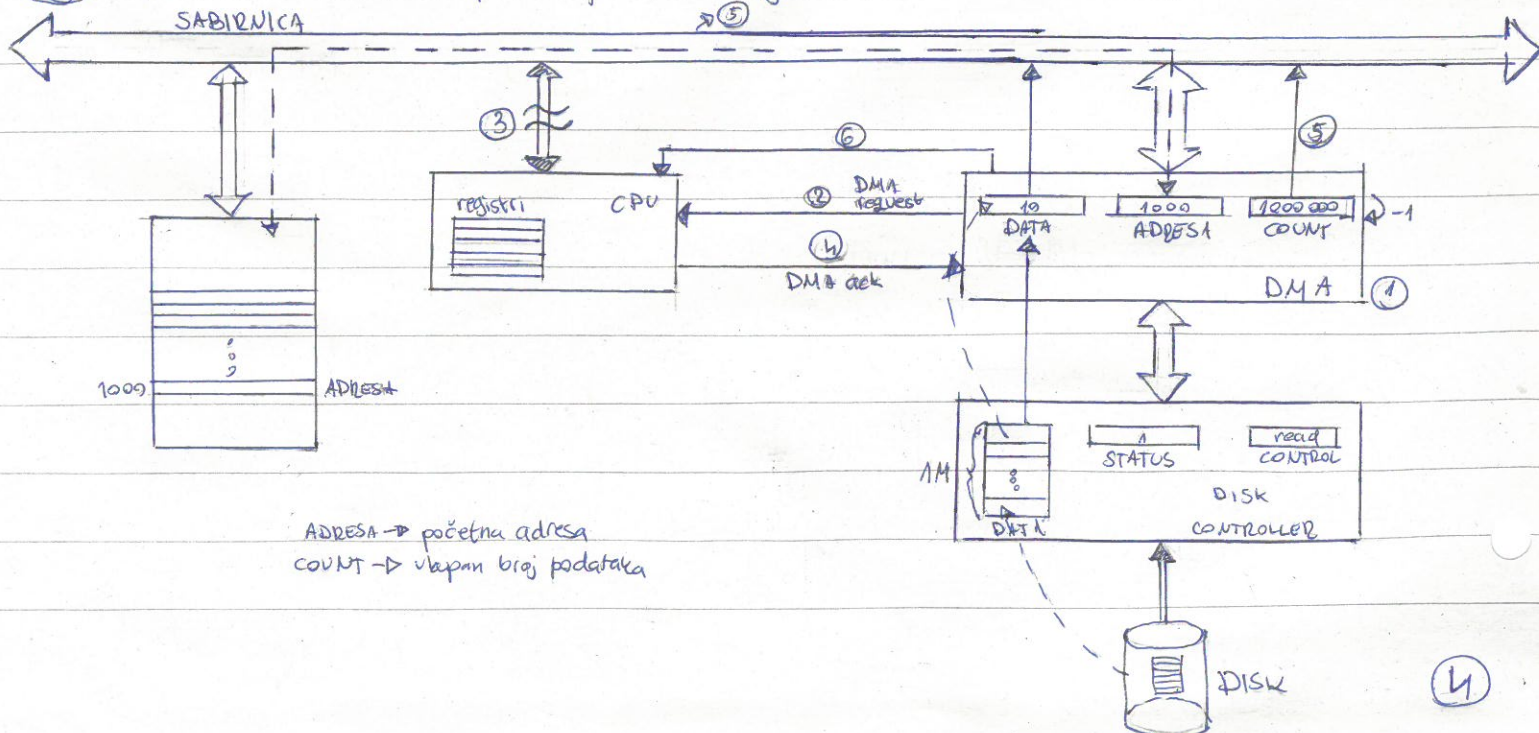 SABIRNICA
5
3
6
registri
CPU
2 DMA
request
4
DMA ack
10
DATA
1000
ADRESA
1200 000
COUNT
-1
5
DMA
1
1000
ADRESA
1M
DATA
1
STATUS
read
CONTROL
DISK
CONTROLLER
ADRESA → početna adresa
COUNT → ukupan broj podataka
DISK
4